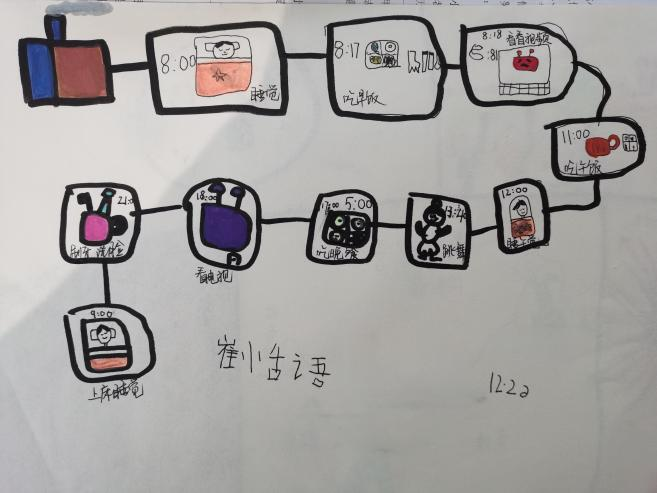 8:00
睡觉
8:17
吃早饭
8:18 看看视频
:81
11:00
吃午饭
12:00
睡午觉
13:20
跳舞
17:00 5:00
吃晚餐
18:00
看电视
21:00
刷牙 洗脸
9:00
上床睡觉
崔小古之语
12.22